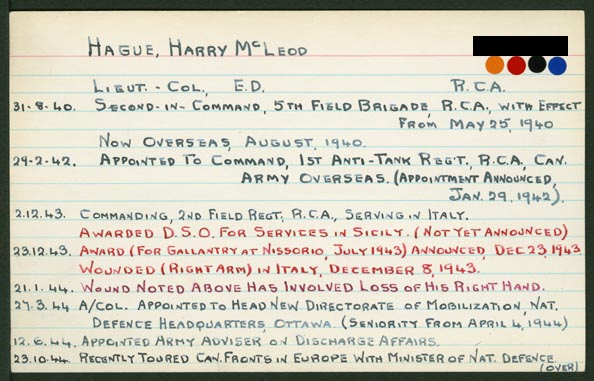 HAGUE, HARRY McLEOD
LIEUT.-COL., E.D. R.C.A.
31-8-40. SECOND-IN-COMMAND, 5TH FIELD BRIGADE, R.C.A., WITH EFFECT
FROM MAY 25, 1940
NOW OVERSEAS, AUGUST, 1940.
29-2-42. APPOINTED TO COMMAND, 1ST ANTI-TANK REG'T., R.C.A., CAN.
ARMY OVERSEAS. (APPOINTMENT ANNOUNCED,
JAN. 29, 1942).
2.12.43. COMMANDING, 2ND FIELD REGT, R.C.A., SERVING IN ITALY.
AWARDED D.S.O. FOR SERVICES IN SICILY. (NOT YET ANNOUNCED)
23.12.43. AWARD (FOR GALLANTRY AT NISSORIO, JULY 1943) ANNOUNCED, DEC. 23, 1943
WOUNDED (RIGHT ARM) IN ITALY, DECEMBER 8, 1943.
21.1.44. WOUND NOTED ABOVE HAS INVOLVED LOSS OF HIS RIGHT HAND.
27.3.44 A/COL. APPOINTED TO HEAD NEW DIRECTORATE OF MOBILIZATION, NAT.
DEFENCE HEADQUARTERS, OTTAWA. (SENIORITY FROM APRIL 4, 1944)
12.6.44. APPOINTED ARMY ADVISER ON DISCHARGE AFFAIRS.
23.10.44. RECENTLY TOURED CAN. FRONTS IN EUROPE WITH MINISTER OF NAT. DEFENCE.
(OVER)